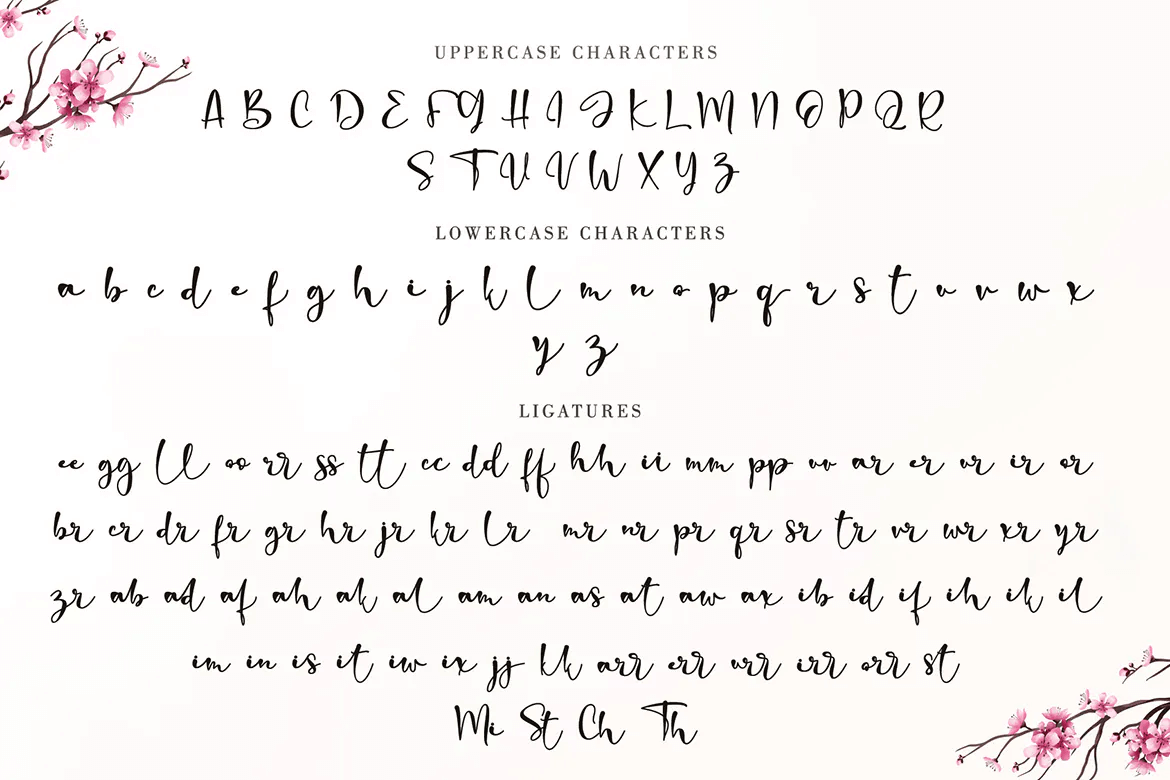 UPPERCASE CHARACTERS
A B C D E F G H I J K L M N O P Q R
S T U V W X Y Z
LOWERCASE CHARACTERS
a b c d e f g h i j k l m n o p q r s t u v w x
y z
LIGATURES
ee gg ll oo rr ss tt cc dd ff hh ii mm pp uu ar er ur ir or
br cr dr fr gr hr jr kr lr mr nr pr qr sr tr vr wr xr yr
zr ab ad af ah ak al am an as at aw ax ib id if ih ik il
im in is it iw ix jj kk arr err urr irr orr st
Mi St Ch Th